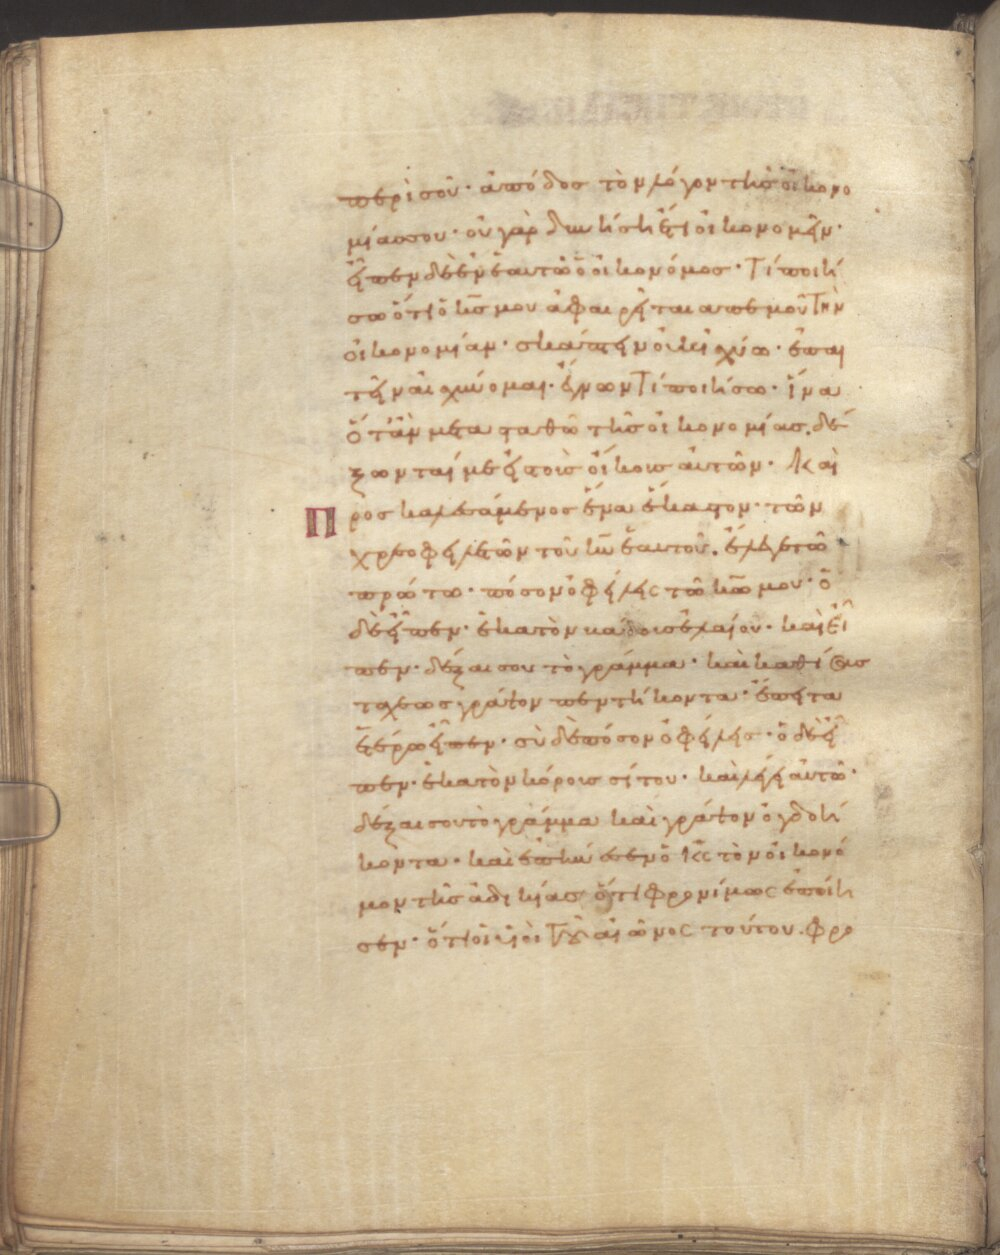 περὶ σοῦ· ἀπόδος τὸν λόγον τῆς οἰκονο
μίας σου· οὐ γὰρ δυνήσῃ ἔτι οἰκονομῆν·
ἦπεν δὲ ἐν ἑαυτῶ ὁ οἰκονόμος· Τί ποιή
σω ὅτι ὁ κς μου ἀφαιρῆται απ εμοῦ Τὴν
οἰκονομίαν· σκάπτην οὐκ ἰσχύω· ἐπαι
τῆν αἰσχύνομαι· ἔγνων Τί ποιήσω· ἵνα
ὅταν μετασταθῶ τῆς οἰκονομίας. δέ
ξωνταί με εἰς τοὺς οἴκους αὐτῶν· Καὶ
Προσκαλεσάμενος ἕνα ἕκαστον· τῶν
χρεοφελετῶν τοῦ κυ ἑαυτοῦ. ἔλεγε τῶ
πρώτω· πόσον ὀφείλεις τῶ κω μου· ὁ
δὲ εἶπεν· ἑκατὸν κάδους ἐλαίου· καὶ εἶ
πεν· δέξαι σου τὸ γράμμα· καὶ καθίσας
ταχέως γράψον πεντήκοντα· ἔπειτα
ἑτέρω εἶπεν· σὺ δὲ πόσον ὀφείλεις· ὁ δὲ εἶ
πεν· ἑκατὸν κόρους σίτου· καὶ λέγει αὐτῶ·
δέξαι σου τὸ γράμμα καὶ γράψον ὀγδοή
κοντα· καὶ ἐπήνεσεν ὁ Κς τὸν οἰκονό
μον τῆς ἀδικίας ὅτι φρονίμως ἐποίη
σεν· ὅτι οἱ υἱοὶ Τοῦ αἰῶνος τούτου. φρο